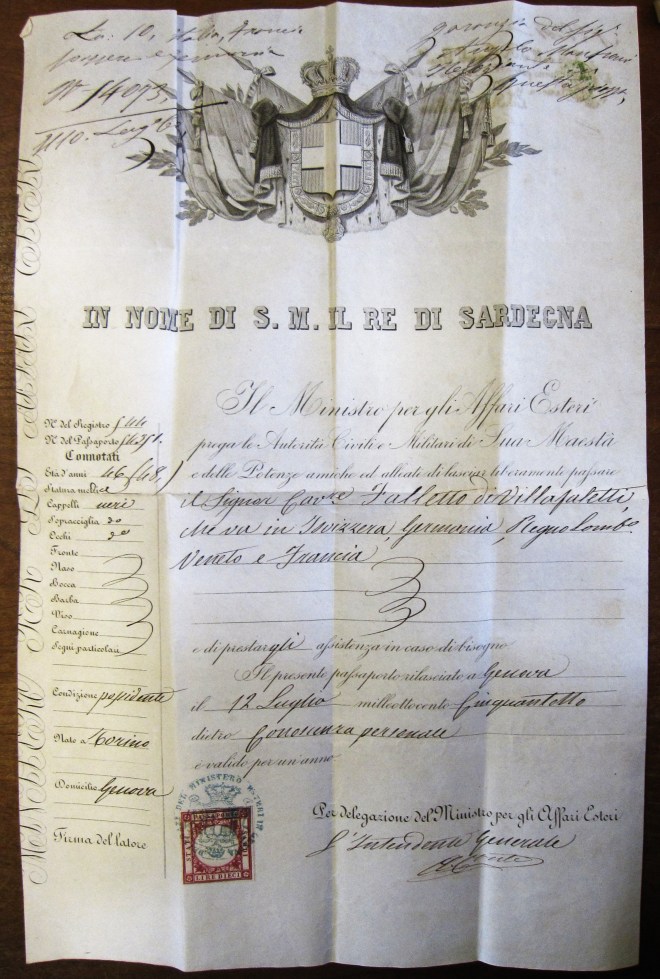 N° 14075
IN NOME DI S. M. IL RE DI SARDEGNA
Il Ministro per gli Affari Esteri
prega le Autorità Civili e Militari di Sua Maestà
e delle Potenze amiche ed alleate di lasciar liberamente passare
il Signor Cav.re Falletto di Villafaletti,
che va in Svizzera, Germania, Regno Lombo
Veneto e Francia
e di prestargli assistenza in caso di bisogno
Il presente passaporto rilasciato a Genova
il 12 Luglio milleottocento Cinquantotto
dietro Conoscenza personale
e valido per un anno
N° del Registro
N° del Passaporto
Connotati
Età d'anni 46
Statura media
Capelli neri
Sopracciglia do
Occhi do
Fronte
Naso
Bocca
Barba
Viso
Carnagione
Segni particolari
Condizione possidente
Nato a Torino
Domicilio Genova
Firma del latore
Per delegazione del Ministro per gli Affari Esteri
L'Intendente Generale
DEL MINISTERO
LIRE DIECI